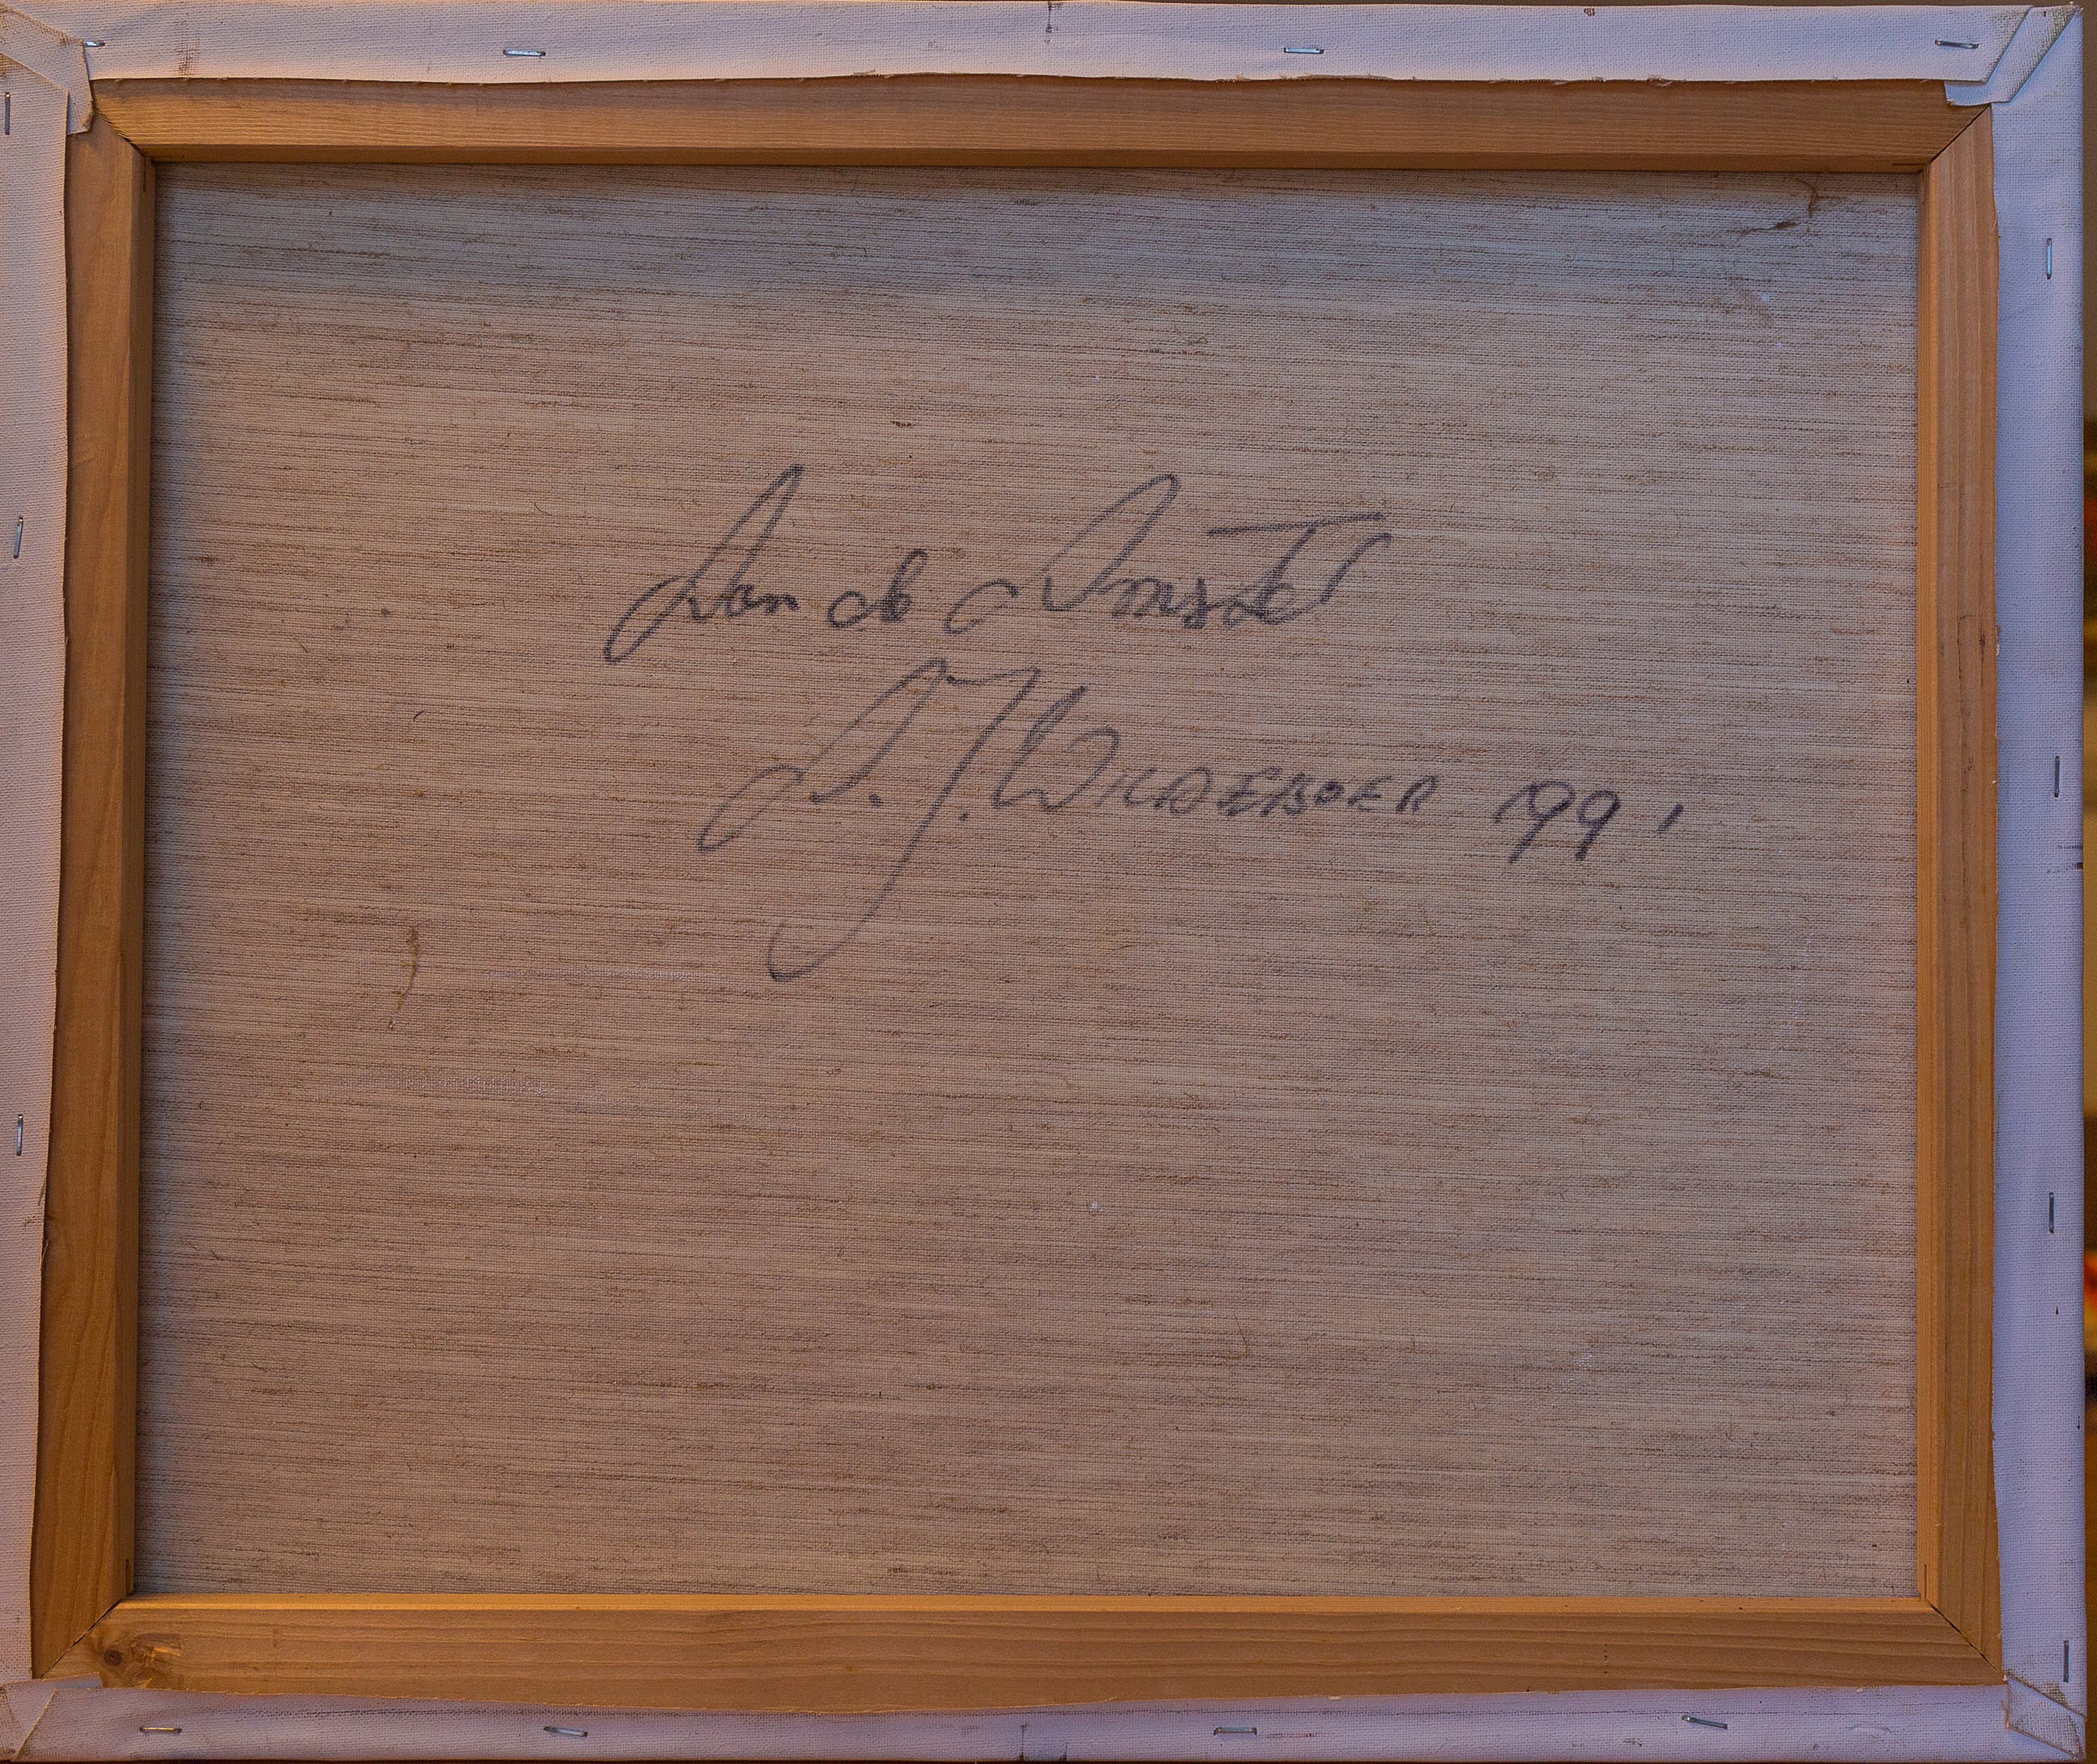 Aan de Amstel
A. J. WILDEBOER 99'